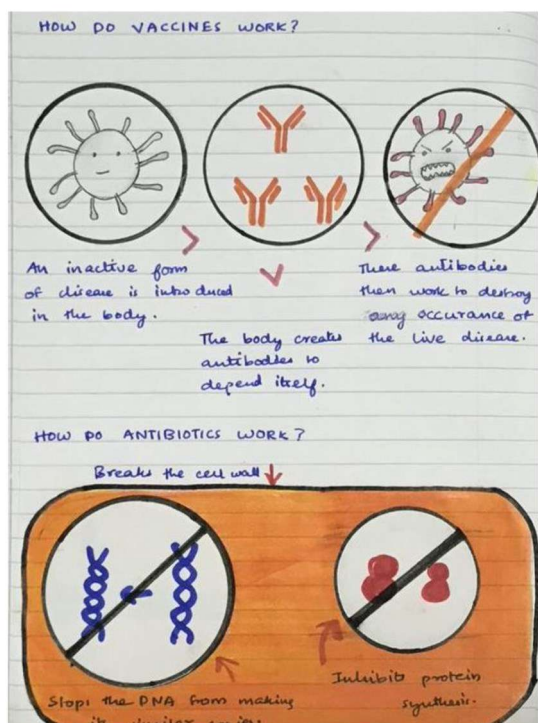 HOW DO VACCINES WORK?
An inactive form
of disease is introduced
in the body.
The body creates
antibodies to
depend itself.
These antibodies
then work to destroy
occurance of
the live disease.
HOW DO ANTIBIOTICS WORK?
Breaks the cell wall
Stops the DNA from making
Inhibits protein
synthesis.